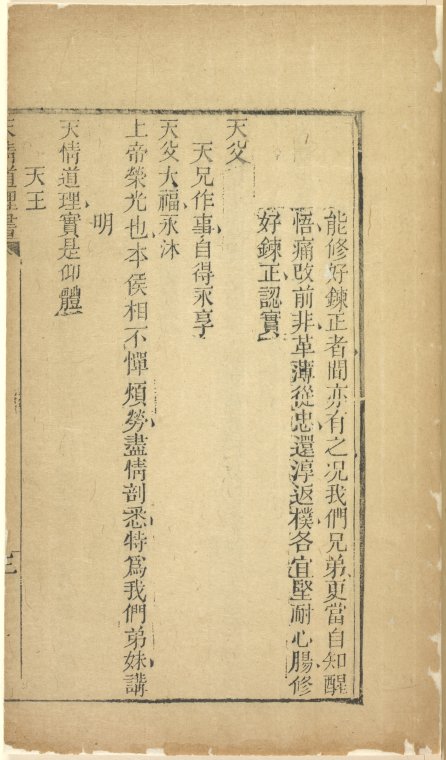 能修好鍊正者間亦有之况我們兄弟更當自知醒
悟痛改前非革薄從忠還淳返樸各宜堅耐心腸修
好鍊正認實
天父
天兄作事自得永享
天父大福永沐
上帝榮光也本侯相不憚煩勞盡情剖悉特爲我們弟妹講
明
天情道理實是仰體
天王
天情道理書